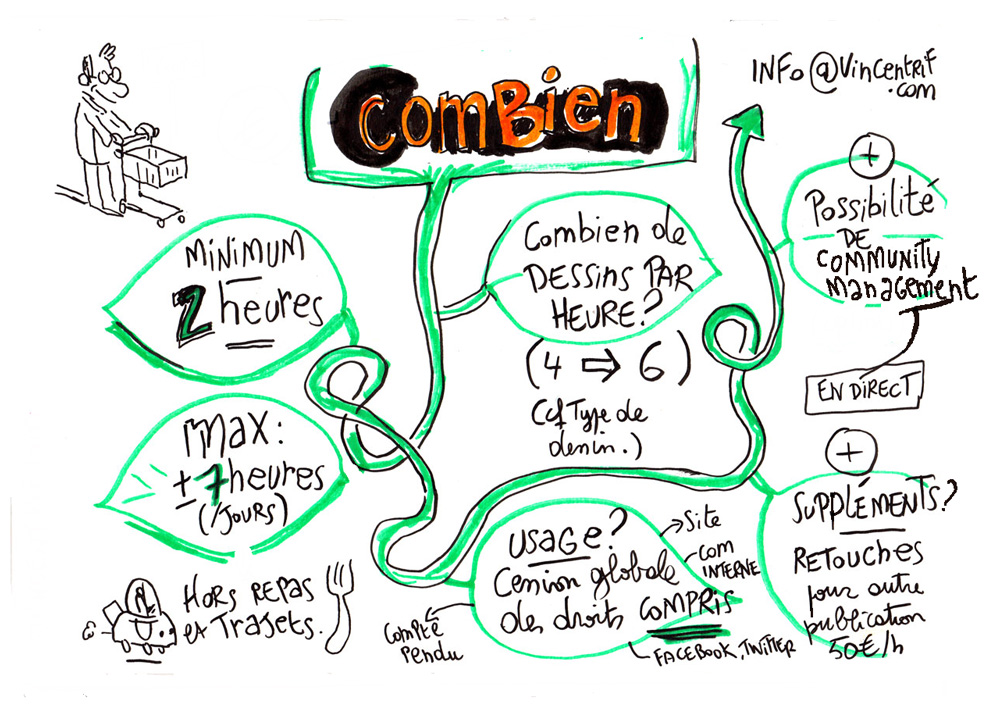 Combien
INFo@VincentRif
.com
MINIMUM
2 heures
Combien de
DESSINS PAR
HEURE?
(4 ⇨ 6)
(cf Type de
dessin.)
+
Possibilité
DE
COMMUNITY
management
EN DIRECT
max:
± 7 heures
(/JOURS)
HORS REPAS
et TRAJETS.
USAGE?
Cession globale
des droits COMPRIS
Site
Com
INTERNE
FACEBOOK, TWITTER
Compte
Rendu
+
SUPPLÉMENTS?
RETOUCHES
pour autre
publication
50€/h